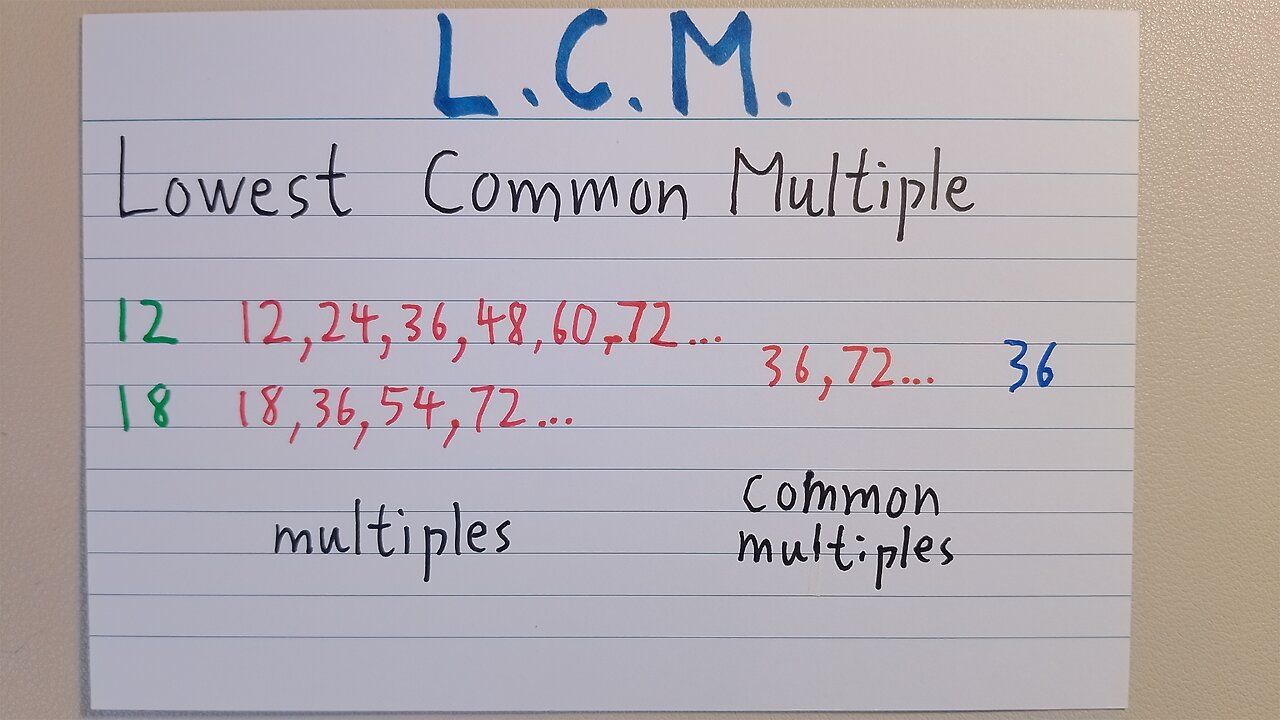 L.C.M.
Lowest Common Multiple
12 12,24,36,48,60,72...
36,72... 36
18 18,36,54,72...
multiples
common
multiples